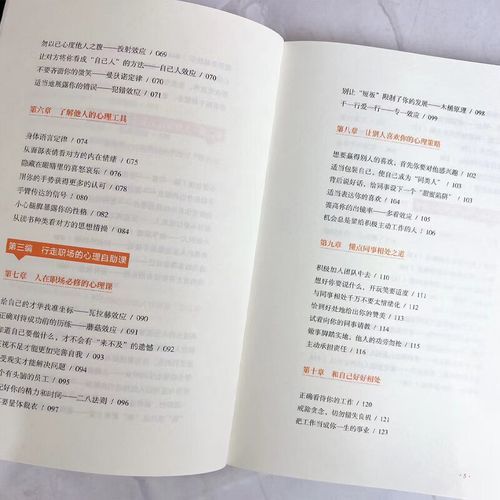 勿以己心度他人之腹——投射效应 / 069
让对方将你看成“自己人”的方法——自己人效应 / 070
不要吝啬你的微笑——曼狄诺定律 / 070
适当地展露你的错误——犯错效应 / 071
第六章 了解他人的心理工具
身体语言定律 / 074
从面部表情看对方的内在情绪 / 075
隐藏在眼睛里的喜怒哀乐 / 076
用你的手势获得更多的认可 / 078
手臂传达的信号 / 080
小心腿脚暴露你的性格 / 082
从读书种类看对方的思想情操 / 084
第三编 行走职场的心理自助课
第七章 人在职场必修的心理课
给自己的才华找准坐标——瓦拉赫效应 / 090
正确对待成功前的历练——蘑菇效应 / 091
知道自己要做什么，才不会有“来不及”的遗憾 / 092
正视不足才能更加完善自我 / 093
受现实才能解决问题 / 094
个有头脑的员工 / 095
配好你的精力和时间——二八法则 / 096
要显体贱衣 / 097
别让“短板”限制了你的发展——木桶原理 / 098
干一行爱一行——专一效应 / 099
第八章 让别人喜欢你的心理策略
想要赢得别人的喜欢，首先你要对他感兴趣 / 102
适当包装自己，使自己成为“同类人” / 103
背后说好话，给同事设下一个“甜蜜陷阱” / 104
适当表达你的喜欢 / 104
提高你的出镜率——多看效应 / 105
机会总是留给积极主动工作的人 / 106
第九章 懂点同事相处之道
积极加入团队中去 / 110
想好你要说什么，开玩笑要适度 / 111
与同事相处千万不要太情绪化 / 112
恰到好处地给出你的赞美 / 113
试着向你的同事请教 / 114
做事脚踏实地，他人的功劳勿抢 / 115
主动承担责任 / 116
第十章 和自己好好相处
正确看待你的工作 / 120
戒除贪念，切勿错失良机 / 121
把工作当成你一生的事业 / 123
· 5 ·